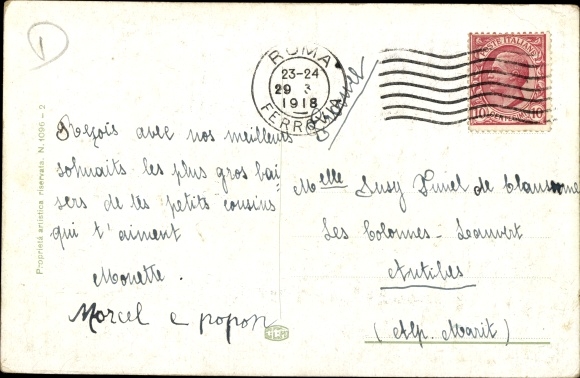 1
ROMA
23-24
29 3
1918
FERROVIA
POSTE ITALIANE
10 CENTESIMI 10
France
Reçois avec nos meilleurs
souhaits les plus gros bai-
sers de tes petits cousins
qui t'aiment
Mouette.
Marcel e popon
Melle Susy de
Les Colonnes -
Antibes
(Alp. Marit)
Proprietà artistica riservata. N. 1096 - 2